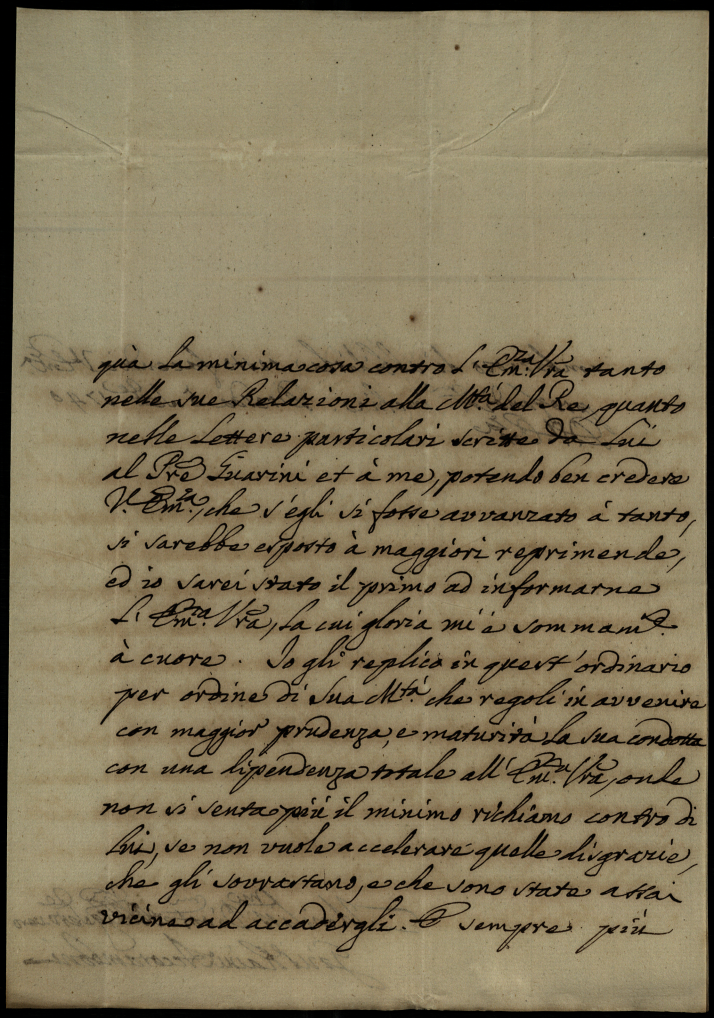 quà la minima cosa contro L'Em.za Vra tanto
nelle sue Relazioni alla M.tà del Re, quanto
nelle Lettere particolari scritte da Lui
al Pre Guarini et à me, potendo ben credere
V. Em.za, che s'egli si fosse avvanzato à tanto,
si sarebbe esposto à maggiori reprimende,
ed io sarei stato il primo ad informarne
L'Em.za Vra, la cui gloria mi è sommam.te
à cuore. Io gli replico in quest'ordinario
per ordine di Sua M.tà che regoli in avvenire
con maggior prudenza, e maturità la sua condotta
con una dipendenza totale all'Em.za Vra, onde
non si senta più il minimo richiamo contro di
Lui, se non vuole accelerare quelle disgrazie,
che gli sovrastano, e che sono state assai
vicine ad accadergli. E sempre più